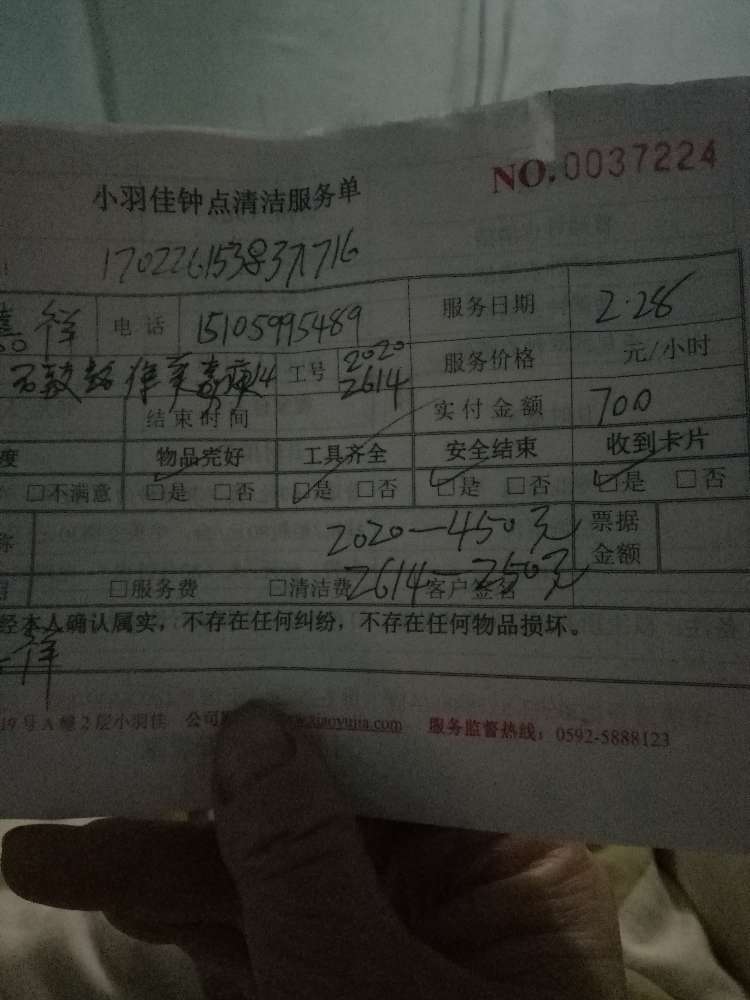 NO.0037224
小羽佳钟点清洁服务单
170226153837716
祥 电话 15105995489 服务日期 2.28
工号 2020 2614 服务价格 元/小时
结束时间 实付金额 700
度 物品完好 工具齐全 安全结束 收到卡片
□不满意 □是 □否 □是 □否 □是 □否 □是 □否
称 2020—450元 票据金额
2614—250元
□服务费 □清洁费 客户签名
经本人确认属实，不存在任何纠纷，不存在任何物品损坏。
祥
19号A幢2层小羽佳 公司 xiaoyujia.com 服务监督热线：0592-5888123